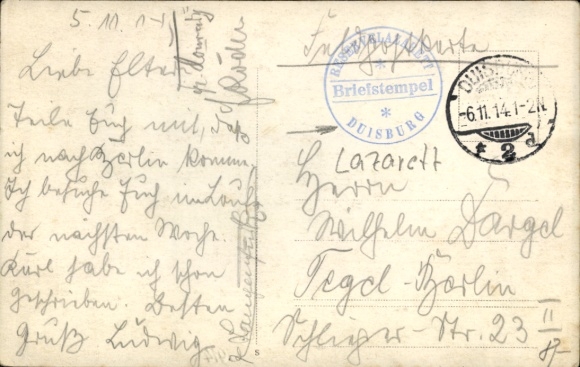 5. 11. 14
Liebe Eltern
Teile Euch mit, daß
ich nach Berlin komme.
Ich besuche Euch im Laufe
der nächsten Woche.
Karl habe ich schon
geschrieben. Besten
Gruß Ludwig
Feldpostkarte
RESERVELAZARETT
Briefstempel
DUISBURG
DUISBURG
-6.11.14.1-2N.
* 2 d
Lazarett
Herrn
Wilhelm Dargel
Tegel-Berlin
Schlieper-Str. 23 II
S